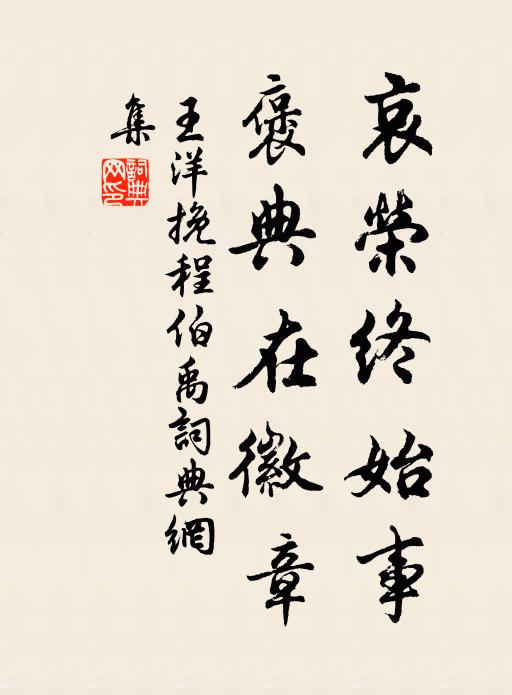 哀榮終始事
褒典在徽章
王洋挽程伯禹詞典網
集
詞典網印